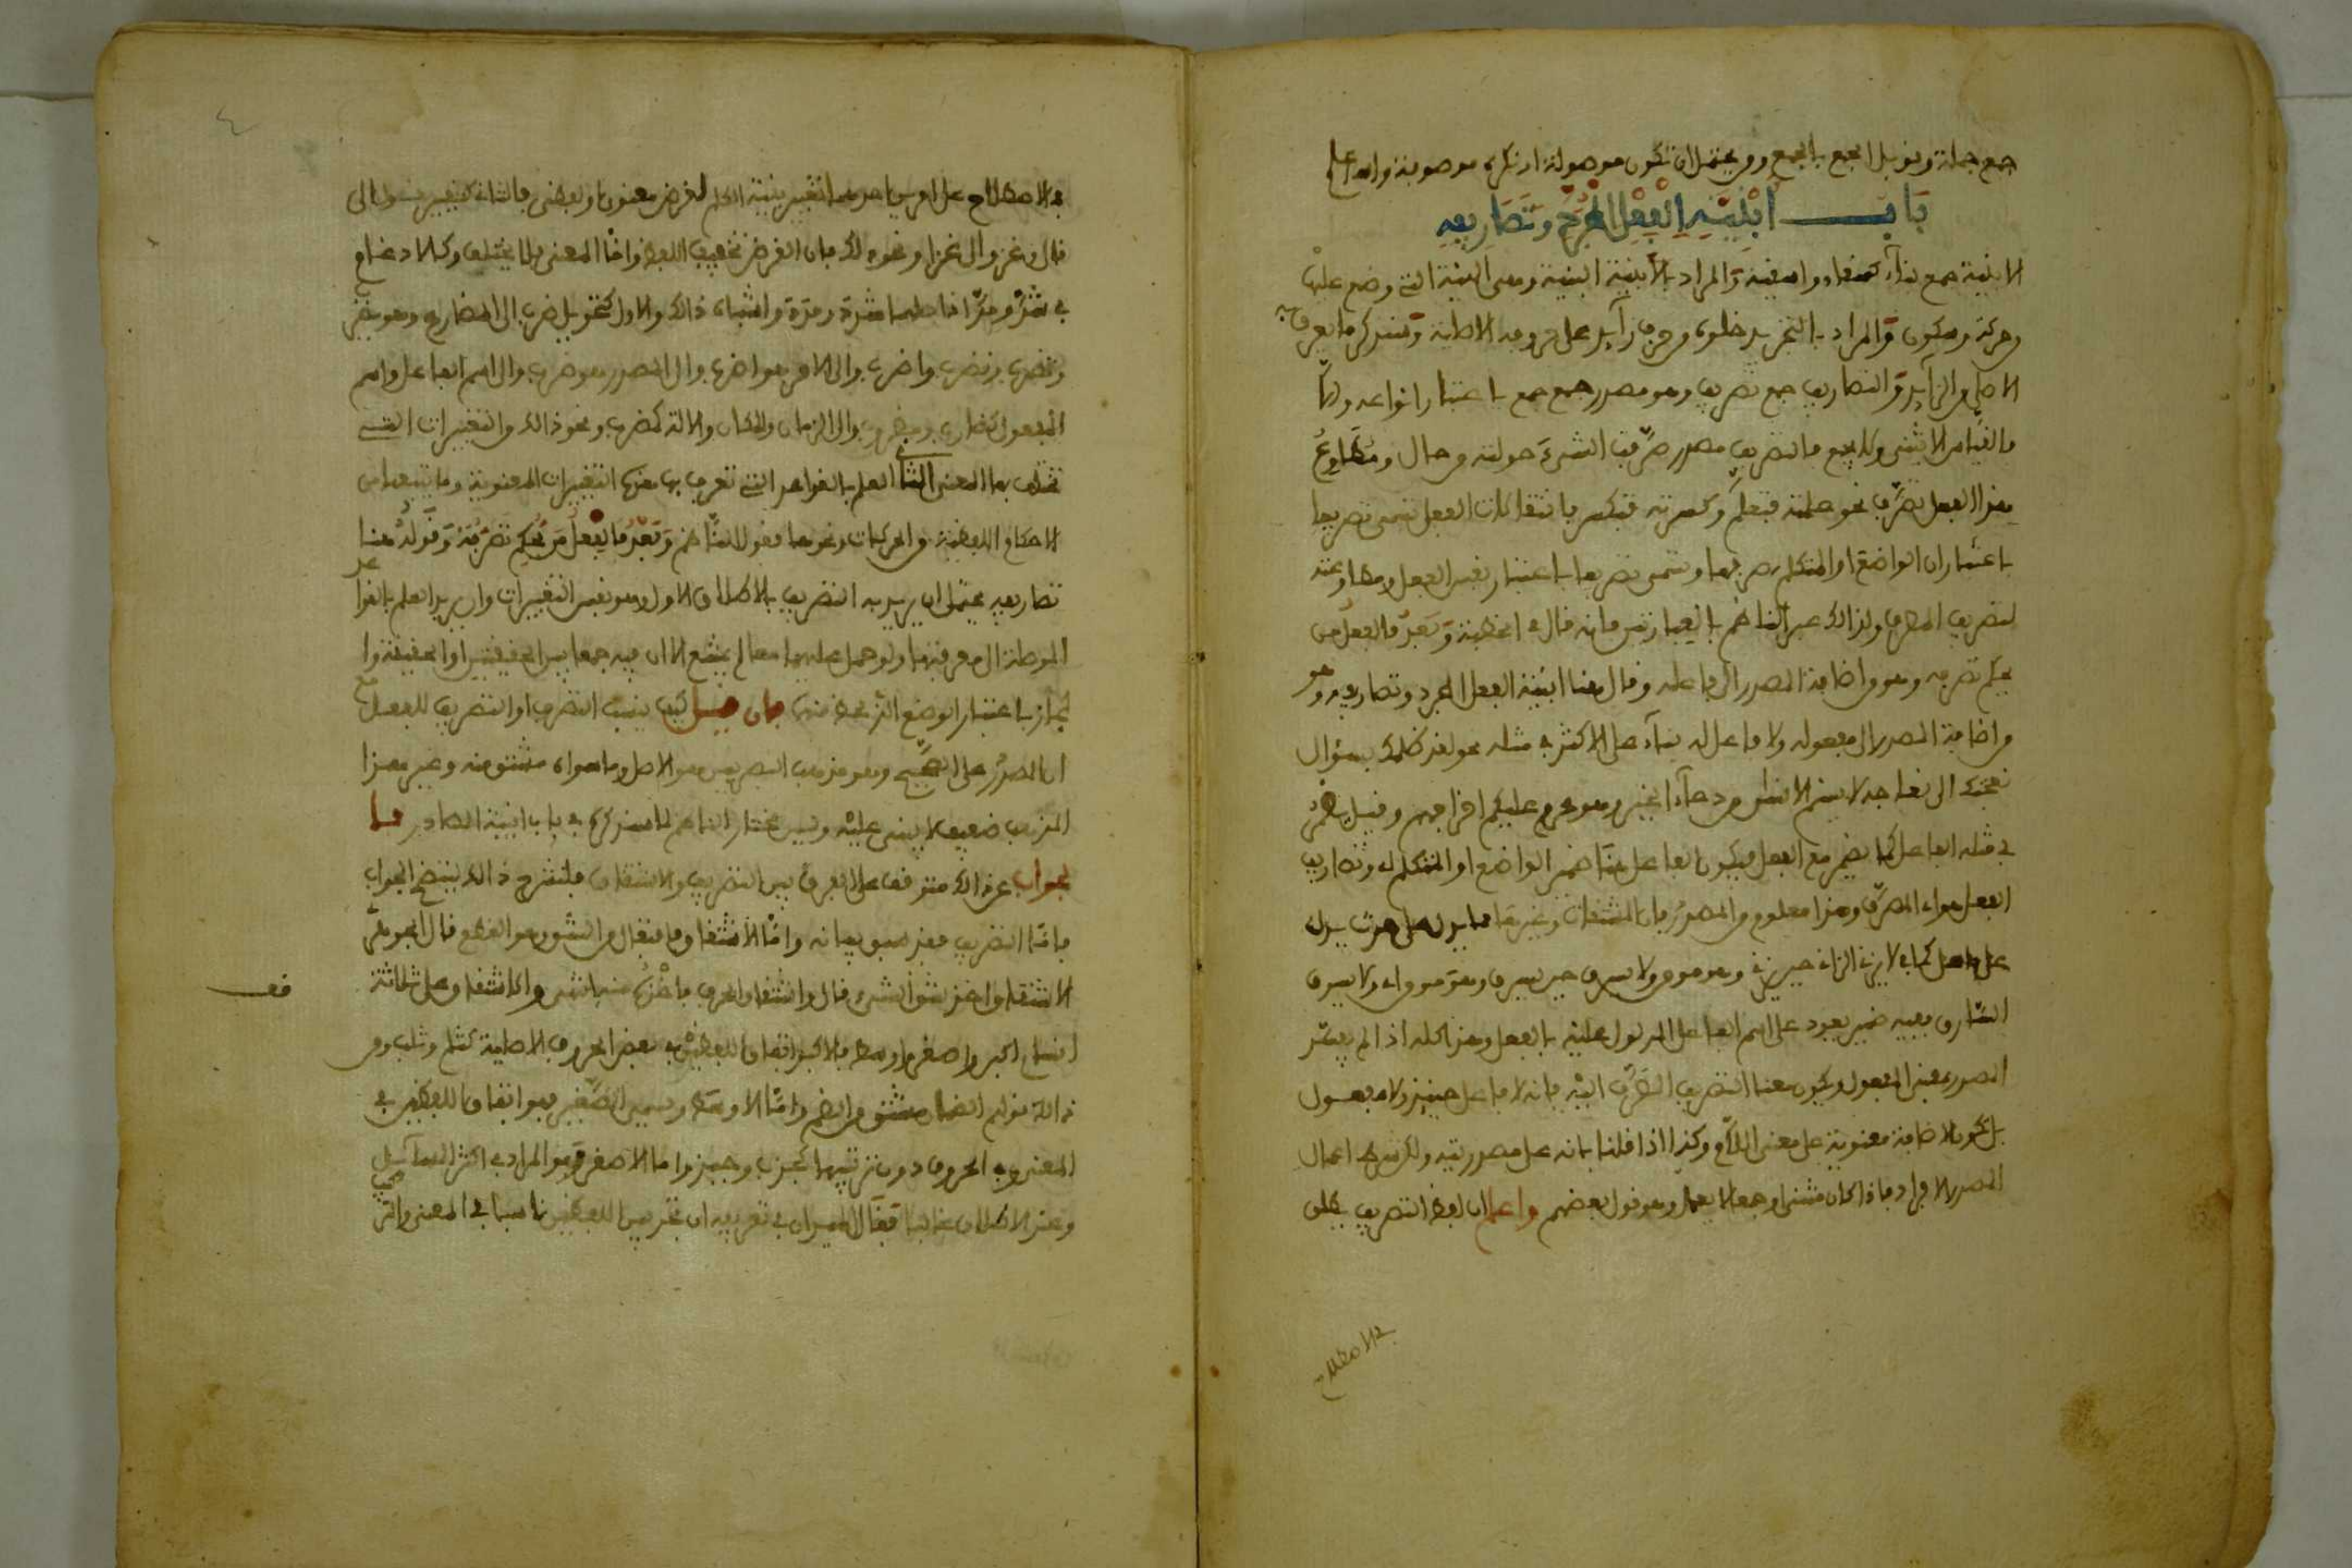 جمع جملة وقوبل الجمع بالجمع ويحتمل ان تكون موصولة او نكرة موصوفة والله اعلم
باب ابنية الفعل المجرد وتصاريفه
الابنية جمع بناء كسقاء واسقية والمراد بالابنية البنية ومعنى البنية التي وضع عليها
وحركة وسكون والمراد بالتجريد خلوه من حرف زائد على حروفه الاصلية وسنذكر ما يعرف به
الاصلي والزائد والتصاريف جمع تصريف وهو مصدر جمع باعتبار انواعه والا
فالقياس لا يثنى ولا يجمع فالتصريف مصدر صرفت الشيء حولته من حال ومطاوع
هذا الفعل تصرف نحو علمته فتعلم وكسرته فتكسر فانتقالات الفعل تسمى تصريفا
باعتبار ان الواضع او المتكلم صرفها وتسمى تصرفا باعتبار نفس الفعل ومطاوعته
لتصريف المصرف ولذلك عبر الناظم بالعبارتين فانه قال في الخطبة وبعد فالفعل من
يحكم تصرفه وهو من اضافة المصدر الى فاعله وقال هنا ابنية الفعل المجرد وتصاريفه وهو
من اضافة المصدر الى مفعوله ولا فاعل له بناء على الاكثر في مثله نحو لقد ظلمك بسؤال
نعجتك الى نعاجه لا يسئم الانسان من دعاء الخير وهو محرم عليكم اخراجهم وقيل يضمر
في مثله الفاعل كما يضمر مع الفعل فيكون الفاعل هنا ضمير الواضع او المتكلم له وتصاريف
الفعل سواء المصرف وهذا معلوم من المصدر فان المشتقات وغيرها مما يدل على حدث يدل
على فاعل كما في لا يزني الزاني حين يزني وهو مومن ولا يسرق حين يسرق وهو مومن اي ولا يسرق
السارق ففيه ضمير يعود على اسم الفاعل المدلول عليه بالفعل وهذا كله اذا لم يفسر
المصدر بمعنى المفعول ويكون معنى التصريف المصرف اليه فانه لا فاعل حينئذ ولا مفعول
بل تكون الاضافة معنوية على معنى اللام وكذا اذا قلنا بانه على مصدريته ولكن شرط اعمال
المصدر الافراد فاذا كان مثنى او جمعا لا يعمل وهو قول بعضهم واعلم ان لفظ التصريف يطلق
في الاصطلاح
في الاصطلاح على امرين احدهما تغيير بنية الكلم لغرض معنوي او لفظي فالثاني كتغيير قول الى
قال وغزو الى غزا ونحو ذلك فان الغرض تخفيف اللفظ واما المعنى فلا يختلف وكالادغام
في شد ومد اذ اصلهما شدد ومدد واشباه ذلك والاول كتحويل ضرب الى المضارع وهو يضرب
وتضرب ونضرب واضرب والى الامر وهو اضرب والى المصدر وهو ضرب والى اسم الفاعل واسم
المفعول كضارب ومضروب والى الزمان والمكان والالة كمضرب ونحو ذلك والتغييرات التي
تختلف بها المعنى الثاني العلم بالقواعد التي تعرف بها هذه التغييرات المعنوية وما يتبعها من
الاحكام اللفظية من الحركات ونحوها فقول الناظم وبعد فالفعل من يحكم تصرفه وقوله هنا
تصاريفه يحتمل ان يريد به التصريف بالاطلاق الاول وهو نفس التغييرات وان يريد العلم بالقواعد
الموصلة الى معرفتها ولو حمل عليهما معا لم يمتنع الا ان فيه جمعا بين الحقيقتين او الحقيقة وا
لمجاز باعتبار الوضع الذي لحظ منها فان قيل كيف ينسب التصرف او التصريف للفعل مع
ان المصدر على الصحيح وهو مذهب البصريين هو الاصل وما سواه مشتق منه وغير هذا
المذهب ضعيف لا يبنى عليه وليس مختار الناظم لما سنذكره في باب ابنية المصادر فا
لجواب عن ذلك متوقف على الفرق بين التصريف والاشتقاق فلنشرح ذلك ليتضح الجواب
فاما التصريف فقد سبق بيانه واما الاشتقاق فافتعال من الشق وهو القطع قال الجوهري
الاشتقاق اخذ شق الشيء قال واشتقاق الحرف اخذه منه انتهى والاشتقاق على ثلاثة
اقسام اكبر واصغر واوسط فالاكبر اتفاق اللفظين في بعض الحروف الاصلية كثلم وثلب ومن
ذلك قولهم الضمان مشتق من الضم واما الاوسط ويسمى الصغير فهو اتفاق اللفظين في
المعنى وفي الحروف دون ترتيبها كجذب وجبذ واما الاصغر وهو المراد في اكثر المسائل
وعند الاطلاق غالبا فقال الميداني في تعريفه ان تجد بين اللفظين تناسبا في المعنى والتر
كيب
قف
٤